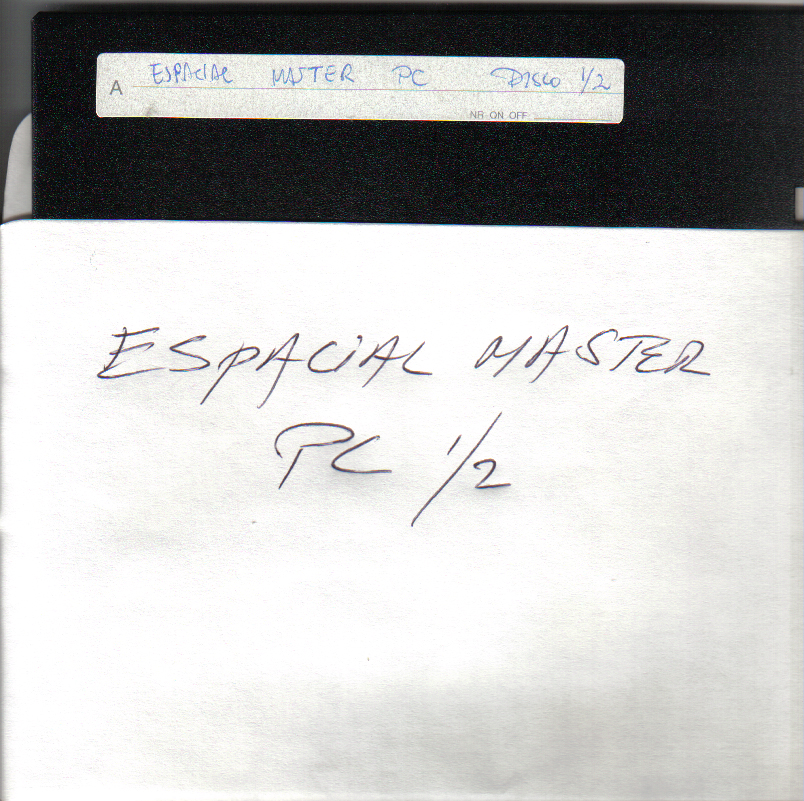 A ESPACIAL MASTER PC DISCO 1/2
NR ON OFF
ESPACIAL MASTER
PC 1/2